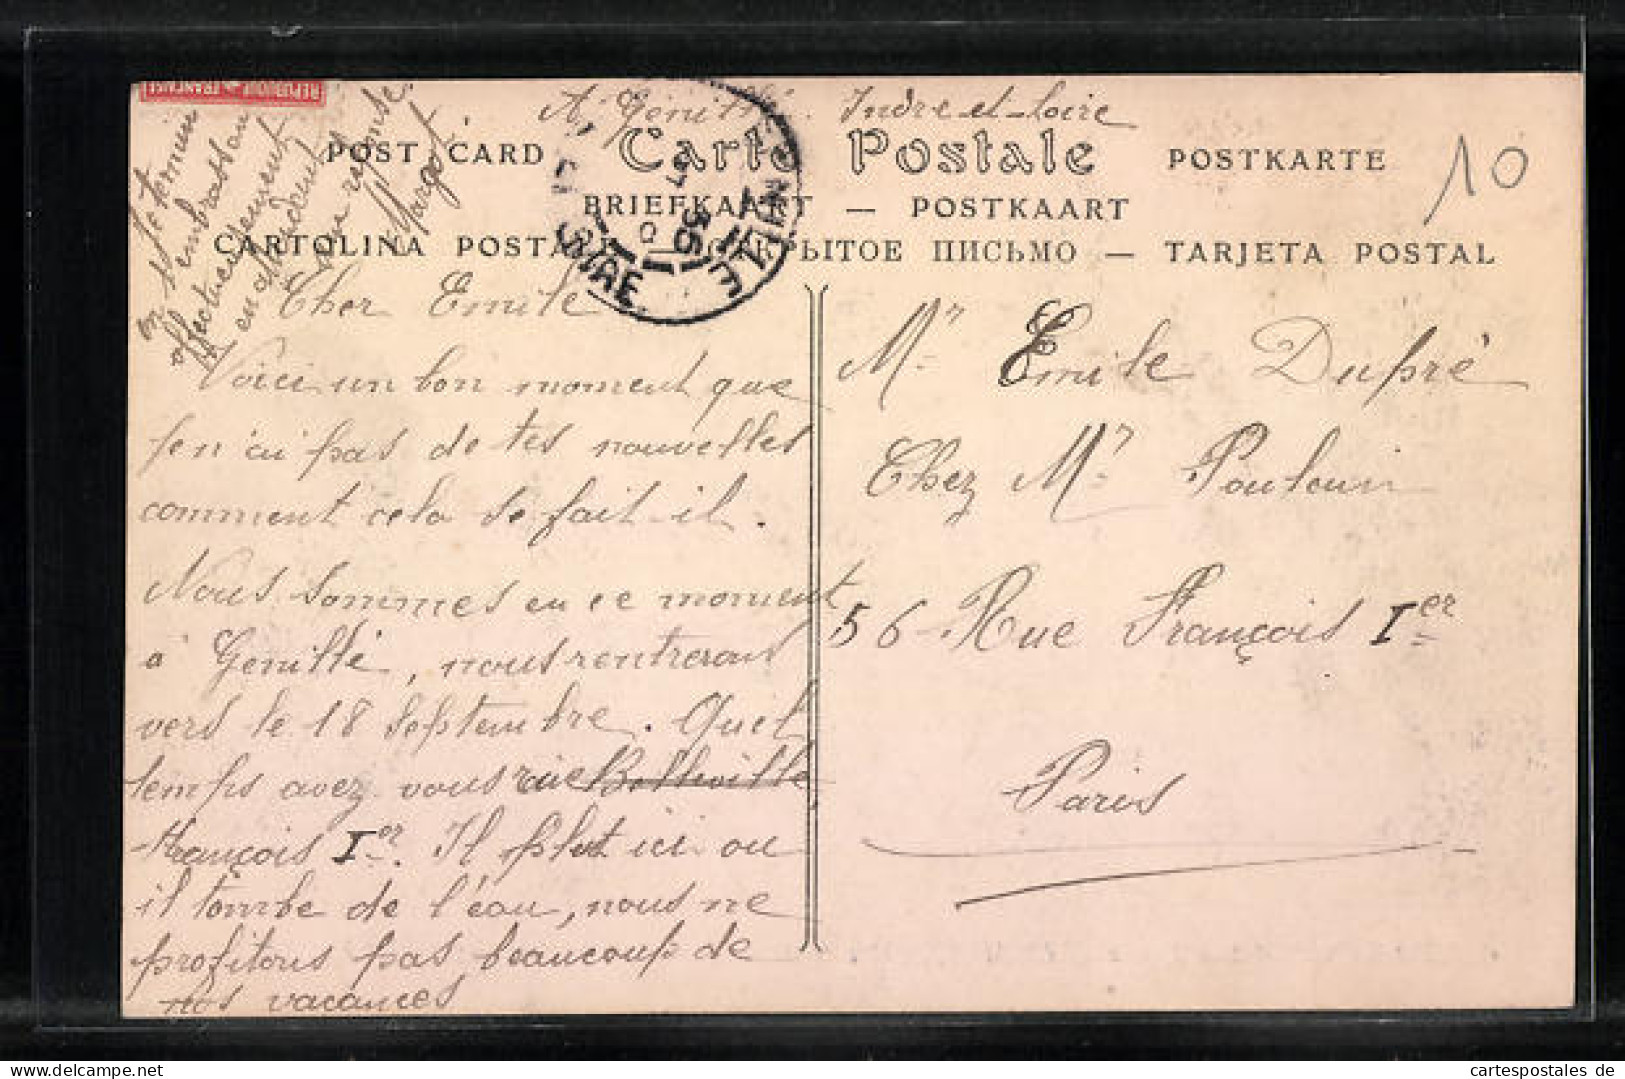 REPUBLIQUE FRANÇAISE
A Genillé. Indre-et-Loire
POST CARD Carte Postale POSTKARTE
BRIEFKAART — POSTKAART
CARTOLINA POSTALE — ОТКРЫТОЕ ПИСЬМО — TARJETA POSTAL
10
Cher Emile
Voici un bon moment que
j'en ai pas de tes nouvelles
comment cela se fait-il.
Nous sommes en ce moment
à Genillé, nous rentrerons
vers le 18 Septembre. Quel
temps avez vous rue Belleville
François Ier. Il pleut ici ou
il tombe de l'eau, nous ne
profitons pas beaucoup de
nos vacances
je termine
en t'embrassan
affectueusement
et en attendent
une réponse
Margot
Mr Emile Dupré
Chez Mr Poulain
56 Rue François Ier
Paris
cartespostales de